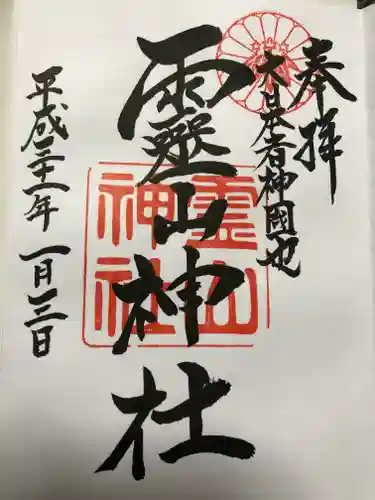 奉拝
大日本者神國也
靈山神社
霊山
神社
平成三十一年 一月十三日